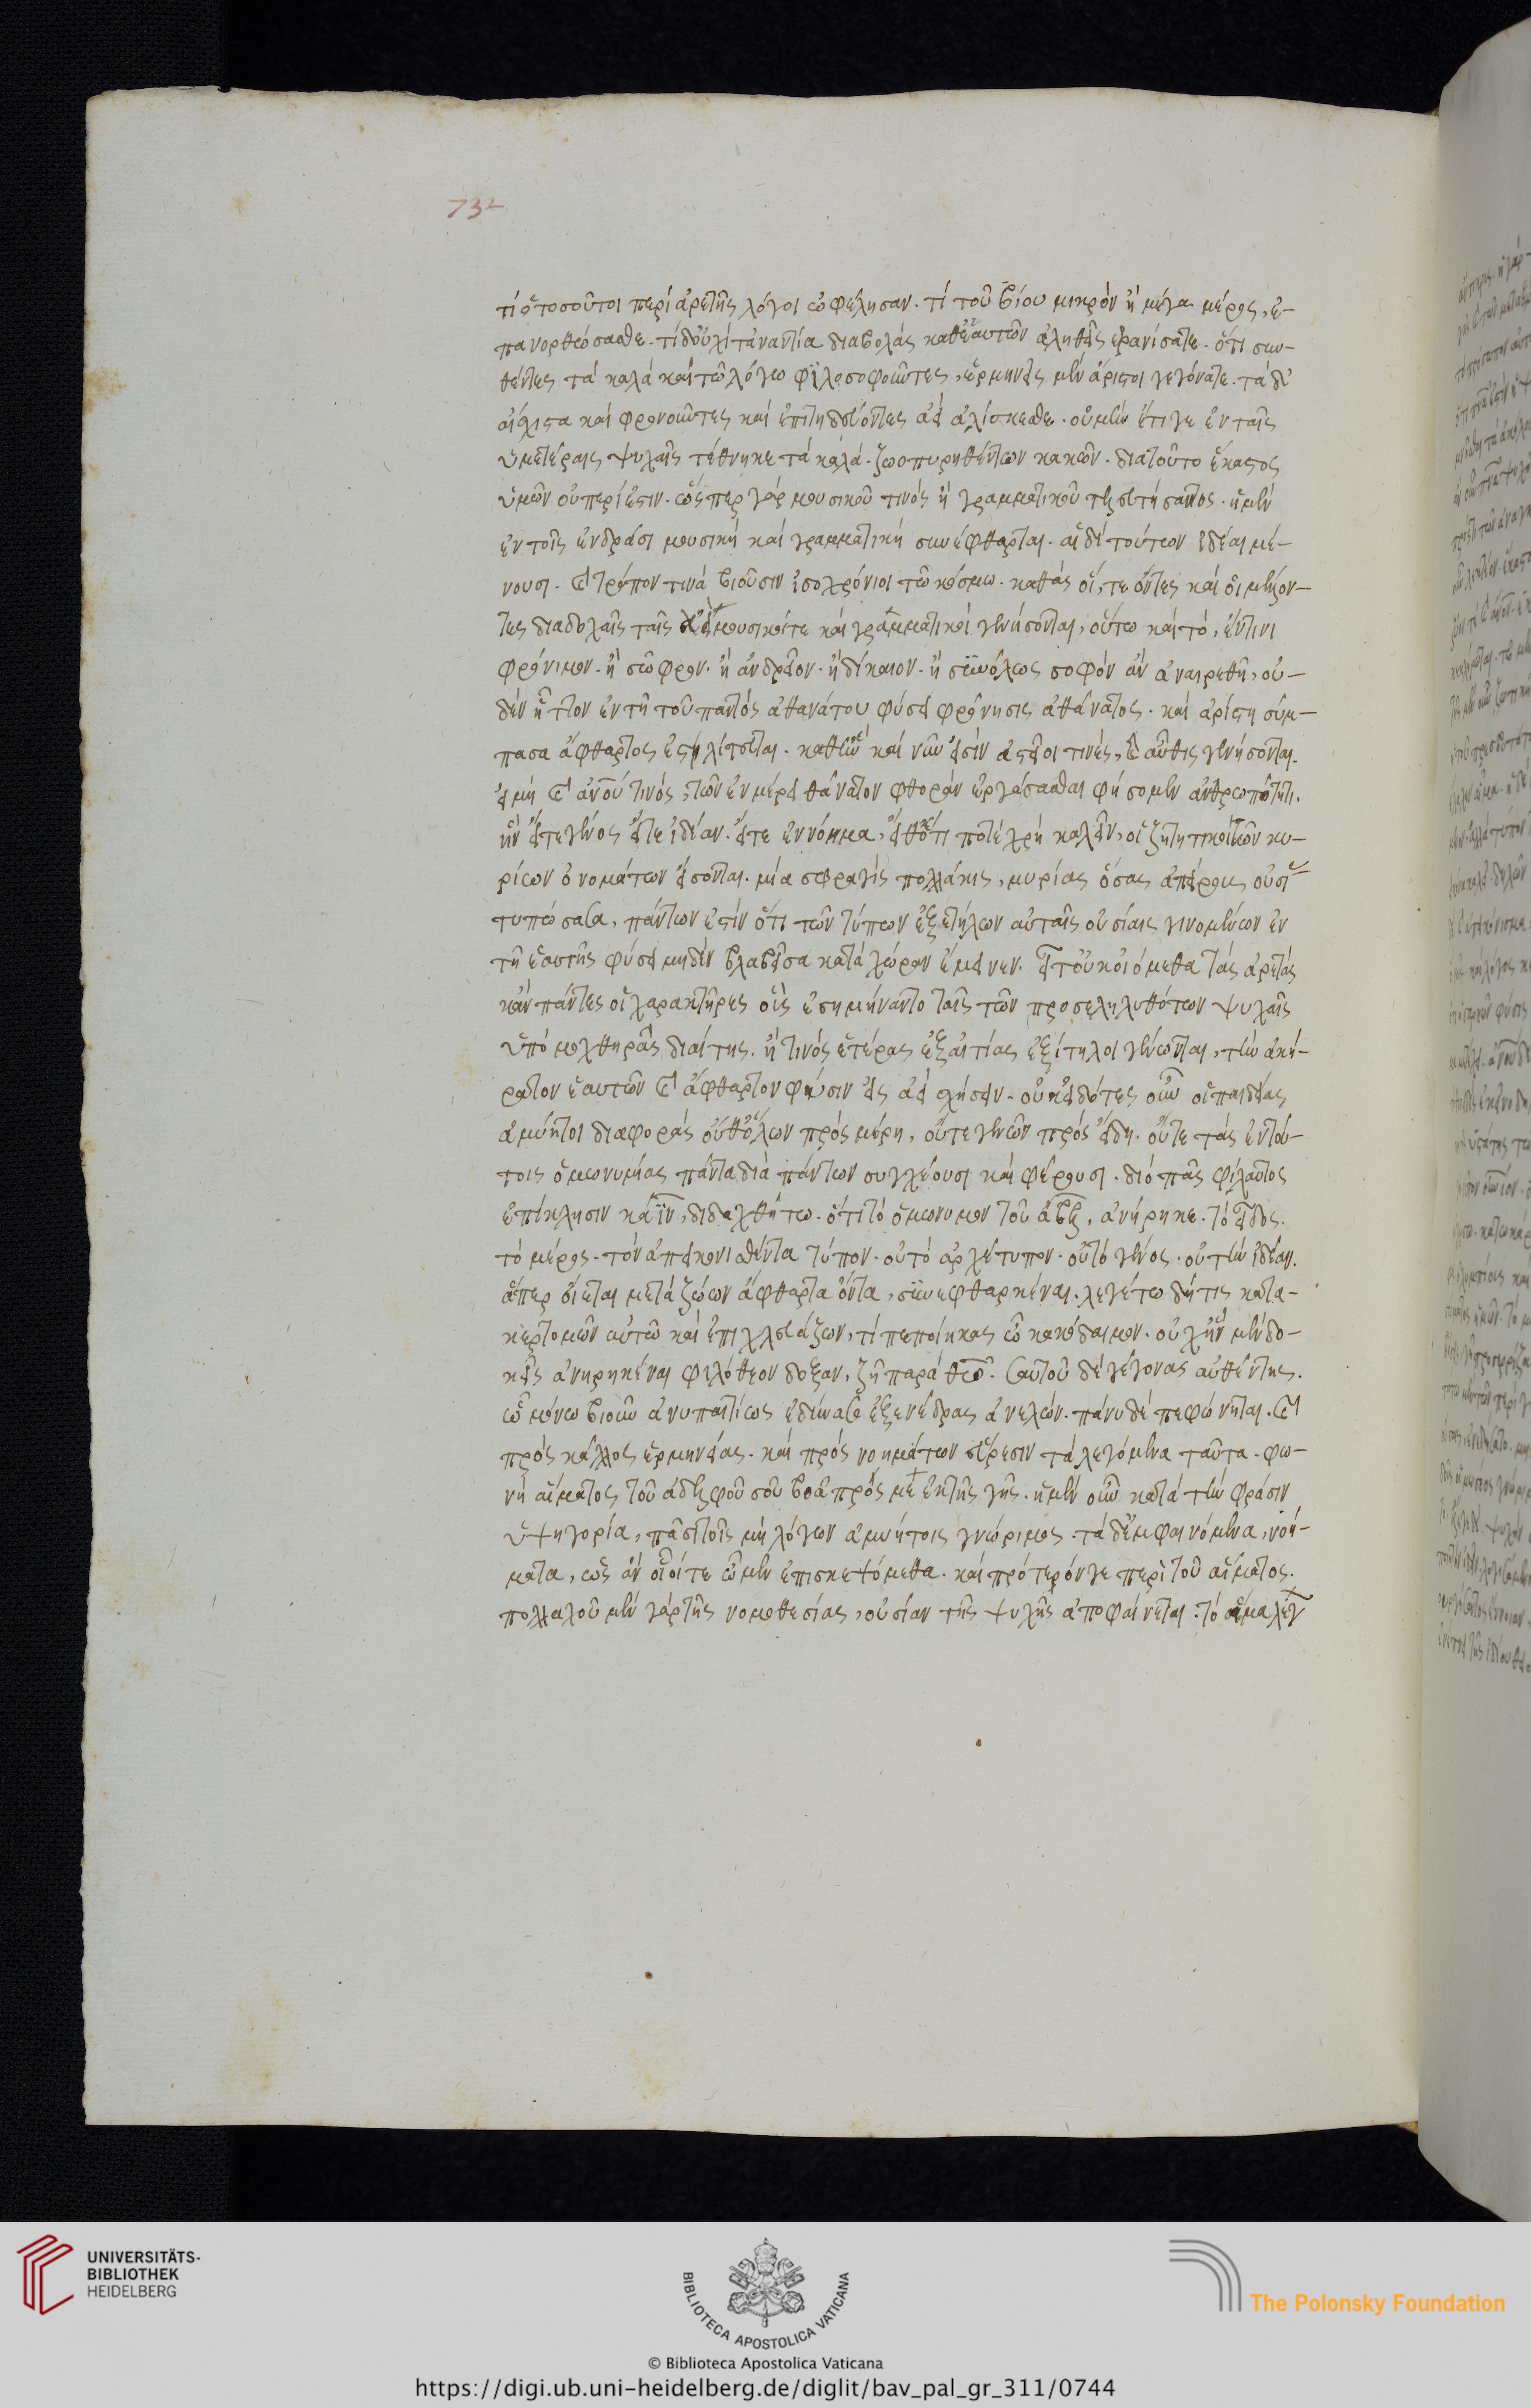 732
τί οἱ τοσοῦτοι περὶ ἀρετῆς λόγοι ὠφέλησαν. τί τοῦ βίου μικρὸν ἢ μέγα μέρος, ἐ-
πανορθώσασθε. τί δ' οὐχὶ τἀναντία διαβολὰς καθ' ἑαυτῶν ἀληθεῖς ἐρανίσατε. ὅτι συν-
θέντες τὰ καλὰ καὶ τῶ λόγω φιλοσοφοῦντες, ἑρμηνεῖς μὲν ἄριστοι γεγόνατε. τὰ δὲ
αἴσχιστα καὶ φρονοῦντες καὶ ἐπιτηδεύοντες ἀεὶ ἁλίσκεσθε. οὐ μὴν ἔτι γε ἐν ταῖς
ὑμετέραις ψυχαῖς τέθνηκε τὰ καλά. ζωοπυρηθέντων κακῶν. διατοῦτο ἕκαστος
ὑμῶν οὐ περίεστιν. ὥσπερ γὰρ μουσικοῦ τινὸς ἢ γραμματικοῦ τελευτήσαντος. ἡ μὲν
ἐν τοῖς ἀνδράσι μουσικὴ καὶ γραμματικὴ συνέφθαρται. αἱ δὲ τούτων ἰδέαι μέ-
νουσι. καὶ τρόπον τινὰ βιοῦσιν ἰσοχρόνιοι τῶ κόσμω. καθ' ἃς οἵ, τε ὄντες καὶ οἱ μέλλον-
τες διαδοχαῖς ταῖς εἰσαεὶ μουσικοί τε καὶ γραμματικοὶ γενήσονται, οὕτω καὶ τὸ, ἔν τινι
φρόνιμον. ἢ σῶφρον. ἢ ἀνδρεῖον. ἢ δίκαιον. ἢ συνόλως σοφὸν ἂν ἀναιρεθῆ, οὐ-
δὲν ἧττον ἐν τῆ τοῦ παντὸς ἀθανάτου φύσει φρόνησις ἀθάνατος. καὶ ἀρετὴ σύμ-
πασα ἄφθαρτος ἐστηλίτευται. καθ' ἣν καὶ νῦν εἰσὶν ἀστεῖοι τινὲς, καὶ αὖθις γενήσονται.
εἰ μὴ καὶ ἀνου τινὸς, τῶν ἐν μέρει θάνατον φθορὰν ἐργάσασθαι φήσομεν ἀνθρωπότητι.
ἣν εἴτε γένος εἴτε ἰδέαν. εἴτε ἐννόημα, εἴθ' ὅτι ποτὲ χρὴ καλεῖν, οἱ ζητητικοὶ τῶν κυ-
ρίων ὀνομάτων εἴσονται. μία σφραγὶς πολλάκις, μυρίας ὅσας ἀπείρους οὐσί
τυπώσασα, πάντων ἔστιν ὅτι τῶν τύπων ἐξιτήλων αὐταῖς οὐσίαις γινομένων ἐν
τῆ ἑαυτῆς φύσει μηδὲν βλαβεῖσα κατὰ χώραν ἔμεινεν. εἶτ' οὐκ οἰόμεθα τὰς ἀρετὰς
κἂν πάντες οἱ χαρακτῆρες οὓς ἐσημήναντο ταῖς τῶν προσεληλυθότων ψυχαῖς
ὑπὸ μοχθηρᾶς διαίτης. ἤ τινος ἑτέρας ἐξ αἰτίας ἐξίτηλοι γένωνται, τὴν ἀκή-
ρατον ἑαυτῶν καὶ ἄφθαρτον φύσιν εἰς ἀεὶ σχήσειν. οὐκ εἰδότες οὖν οἱ παιδείας
ἀμύητοι διαφορὰς οὔθ' ὅλων πρὸς μέρη, οὔτε γενῶν πρὸς εἴδη. οὔτε τὰς ἐν τού-
τοις ὁμωνυμίας πάντα διὰ πάντων συγχέουσι καὶ φέρουσι. διὸ πᾶς φίλαυτος
ἐπίκλησιν κάϊν, διδαχθήτω. ὅτι τὸ ὁμώνυμον τοῦ ἄβελ, ἀνήρηκε. τὸ εἶδος.
τὸ μέρος. τὸν ἀπεικονισθέντα τύπον. οὐ τὸ ἀρχέτυπον. οὐ τὸ γένος. οὐ τὴν ἰδέαν.
ἅπερ οἴεται μετὰ ζώων ἄφθαρτα ὄντα, συνεφθαρκέναι. λεγέτω δή τις κατα-
κερτομῶν αὐτῶ καὶ ἐπιχλευάζων, τί πεποίηκας ὦ κακόδαιμον. οὐχ ἣν μὲν δο-
κεῖς ἀνηρηκέναι φιλόθεον δόξαν, ζῆ παρὰ θεῶ. σαυτοῦ δὲ γέγονας αὐθέντης.
ὧ μόνω βιοῦν ἀνυπαιτίως ἐδύνασο ἐξ ἐνέδρας ἀνελών. πάνυ δὲ πεφώνηται. καὶ
πρὸς κάλλος ἑρμηνείας. καὶ πρὸς νοημάτων εὕρεσιν τὰ λεγόμενα ταῦτα. φω-
νὴ αἵματος τοῦ ἀδελφοῦ σου βοᾶ πρός με ἐκ τῆς γῆς. ἡ μὲν οὖν κατὰ τὴν φράσιν
ὑψηγορία, πᾶσι τοῖς μὴ λόγων ἀμυήτοις γνώριμος. τὰ δ' ἐμφαινόμενα, νοή-
ματα, ὡς ἂν οἷοί τε ὦμεν ἐπισκεψόμεθα. καὶ πρότερόν γε περὶ τοῦ αἵματος.
πολλαχοῦ μὲν γὰρ τῆς νομοθεσίας, οὐσίαν τῆς ψυχῆς ἀποφαίνεται. τὸ αἷμα λέγ
UNIVERSITÄTS-
BIBLIOTHEK
HEIDELBERG
BIBLIOTECA APOSTOLICA VATICANA
The Polonsky Foundation
© Biblioteca Apostolica Vaticana
https://digi.ub.uni-heidelberg.de/diglit/bav_pal_gr_311/0744